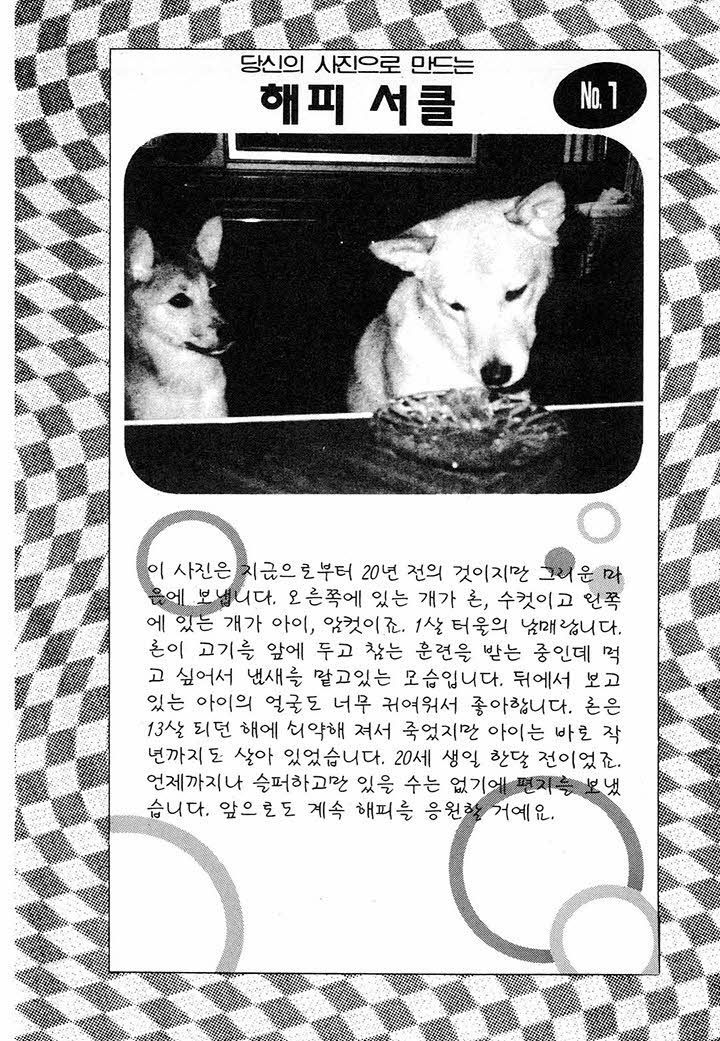 당신의 사진으로 만드는
해피 서클
No. 1
이 사진은 지금으로부터 20년 전의 것이지만 그리운 마
음에 보냅니다. 오른쪽에 있는 개가 론, 수컷이고 왼쪽
에 있는 개가 아이, 암컷이죠. 1살 터울의 남매랍니다.
론이 고기를 앞에 두고 참는 훈련을 받는 중인데 먹
고 싶어서 냄새를 맡고있는 모습입니다. 뒤에서 보고
있는 아이의 얼굴도 너무 귀여워서 좋아합니다. 론은
13살 되던 해에 쇠약해 져서 죽었지만 아이는 바로 작
년까지도 살아 있었습니다. 20세 생일 한달 전이었죠.
언제까지나 슬퍼하고만 있을 수는 없기에 편지를 보냈
습니다. 앞으로도 계속 해피를 응원할 거예요.